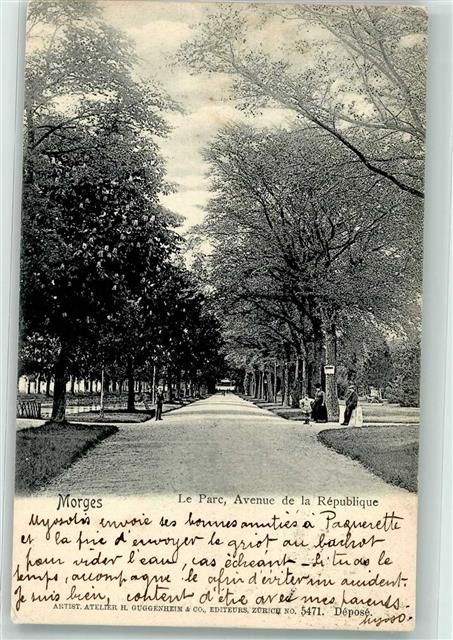 Morges
Le Parc, Avenue de la République
Myosotis envoie ses bonnes amitiés à Paquerette
et la prie d'envoyer le griot au bachot
pour vider l'eau, cas échéant – Si tu as le
temps, accompagne le afin d'éviter un accident.
Je suis bien, content d'être avec mes parents.
ARTIST. ATELIER H. GUGGENHEIM & CO., EDITEURS, ZÜRICH NO. 5471. Déposé.